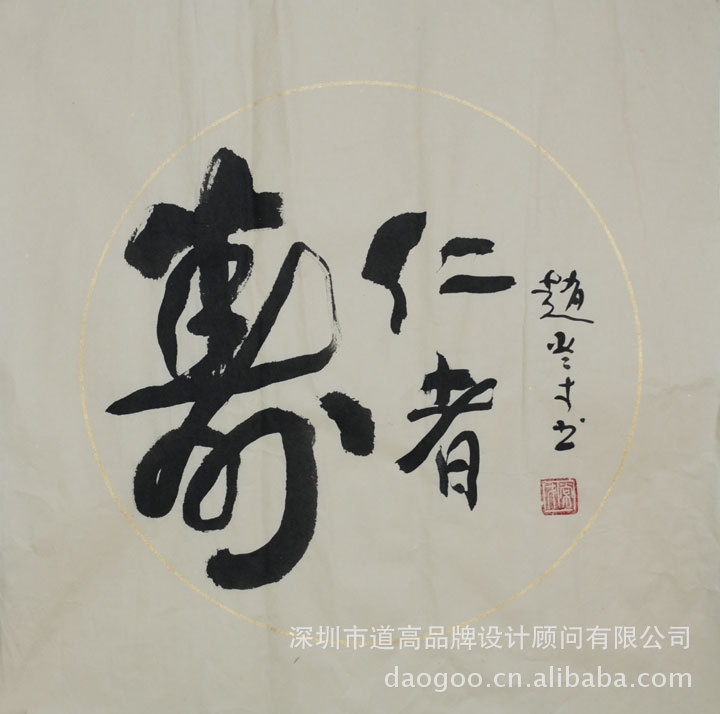 仁者
寿
趙 才书
深圳市道高品牌设计顾问有限公司
daogoo.cn.alibaba.com